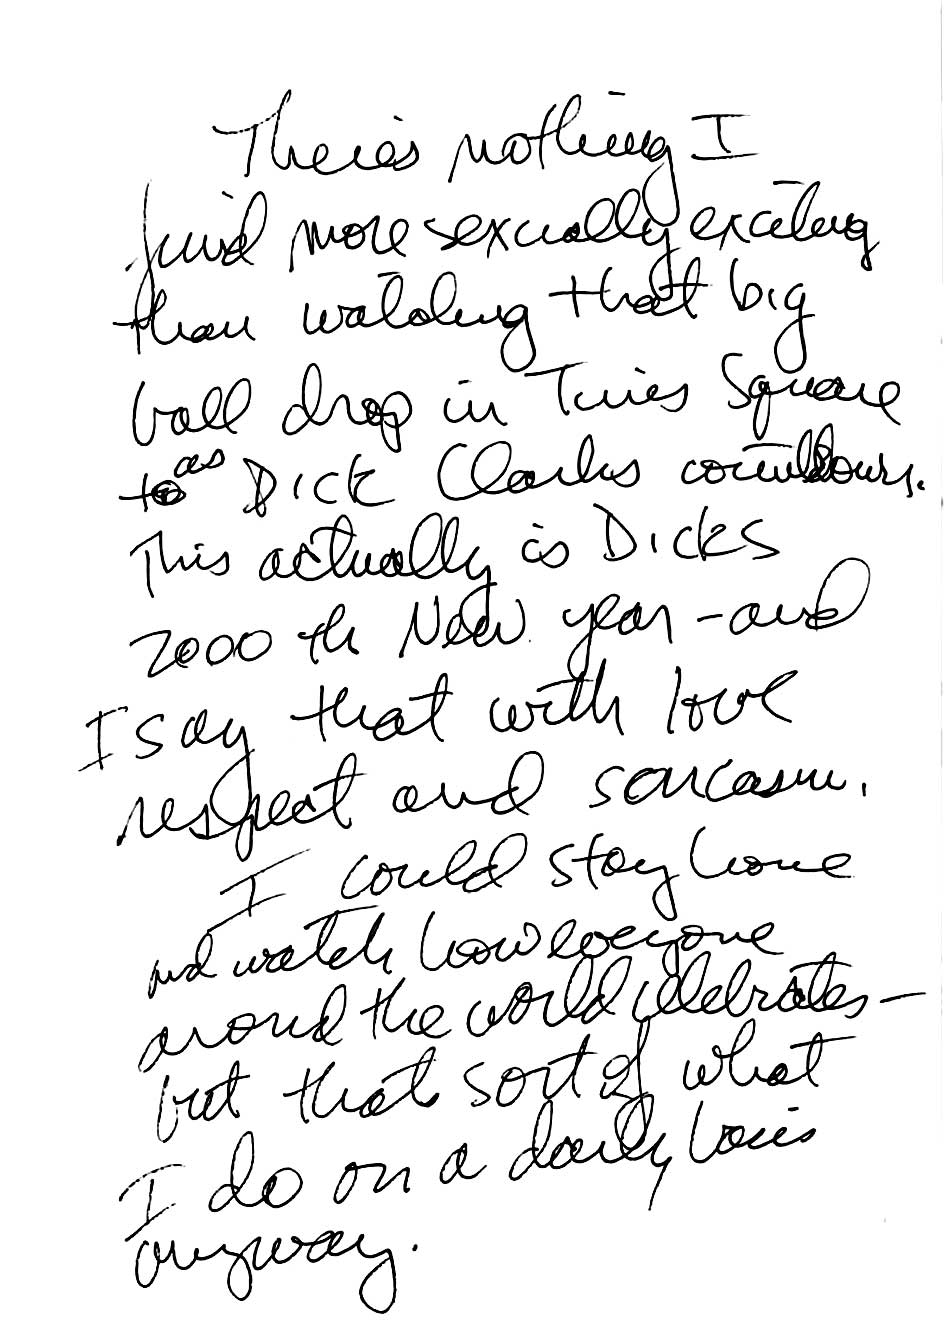 There's nothing I
find more sexually exciting
than watching that big
ball drop in Times Square
as Dick Clark counts down.
This actually is Dicks
2000 th New year - and
I say that with love
respect and sarcasm.
I could stay home
and watch how everyone
around the world celebrates -
but that's sort of what
I do on a daily basis
anyway.